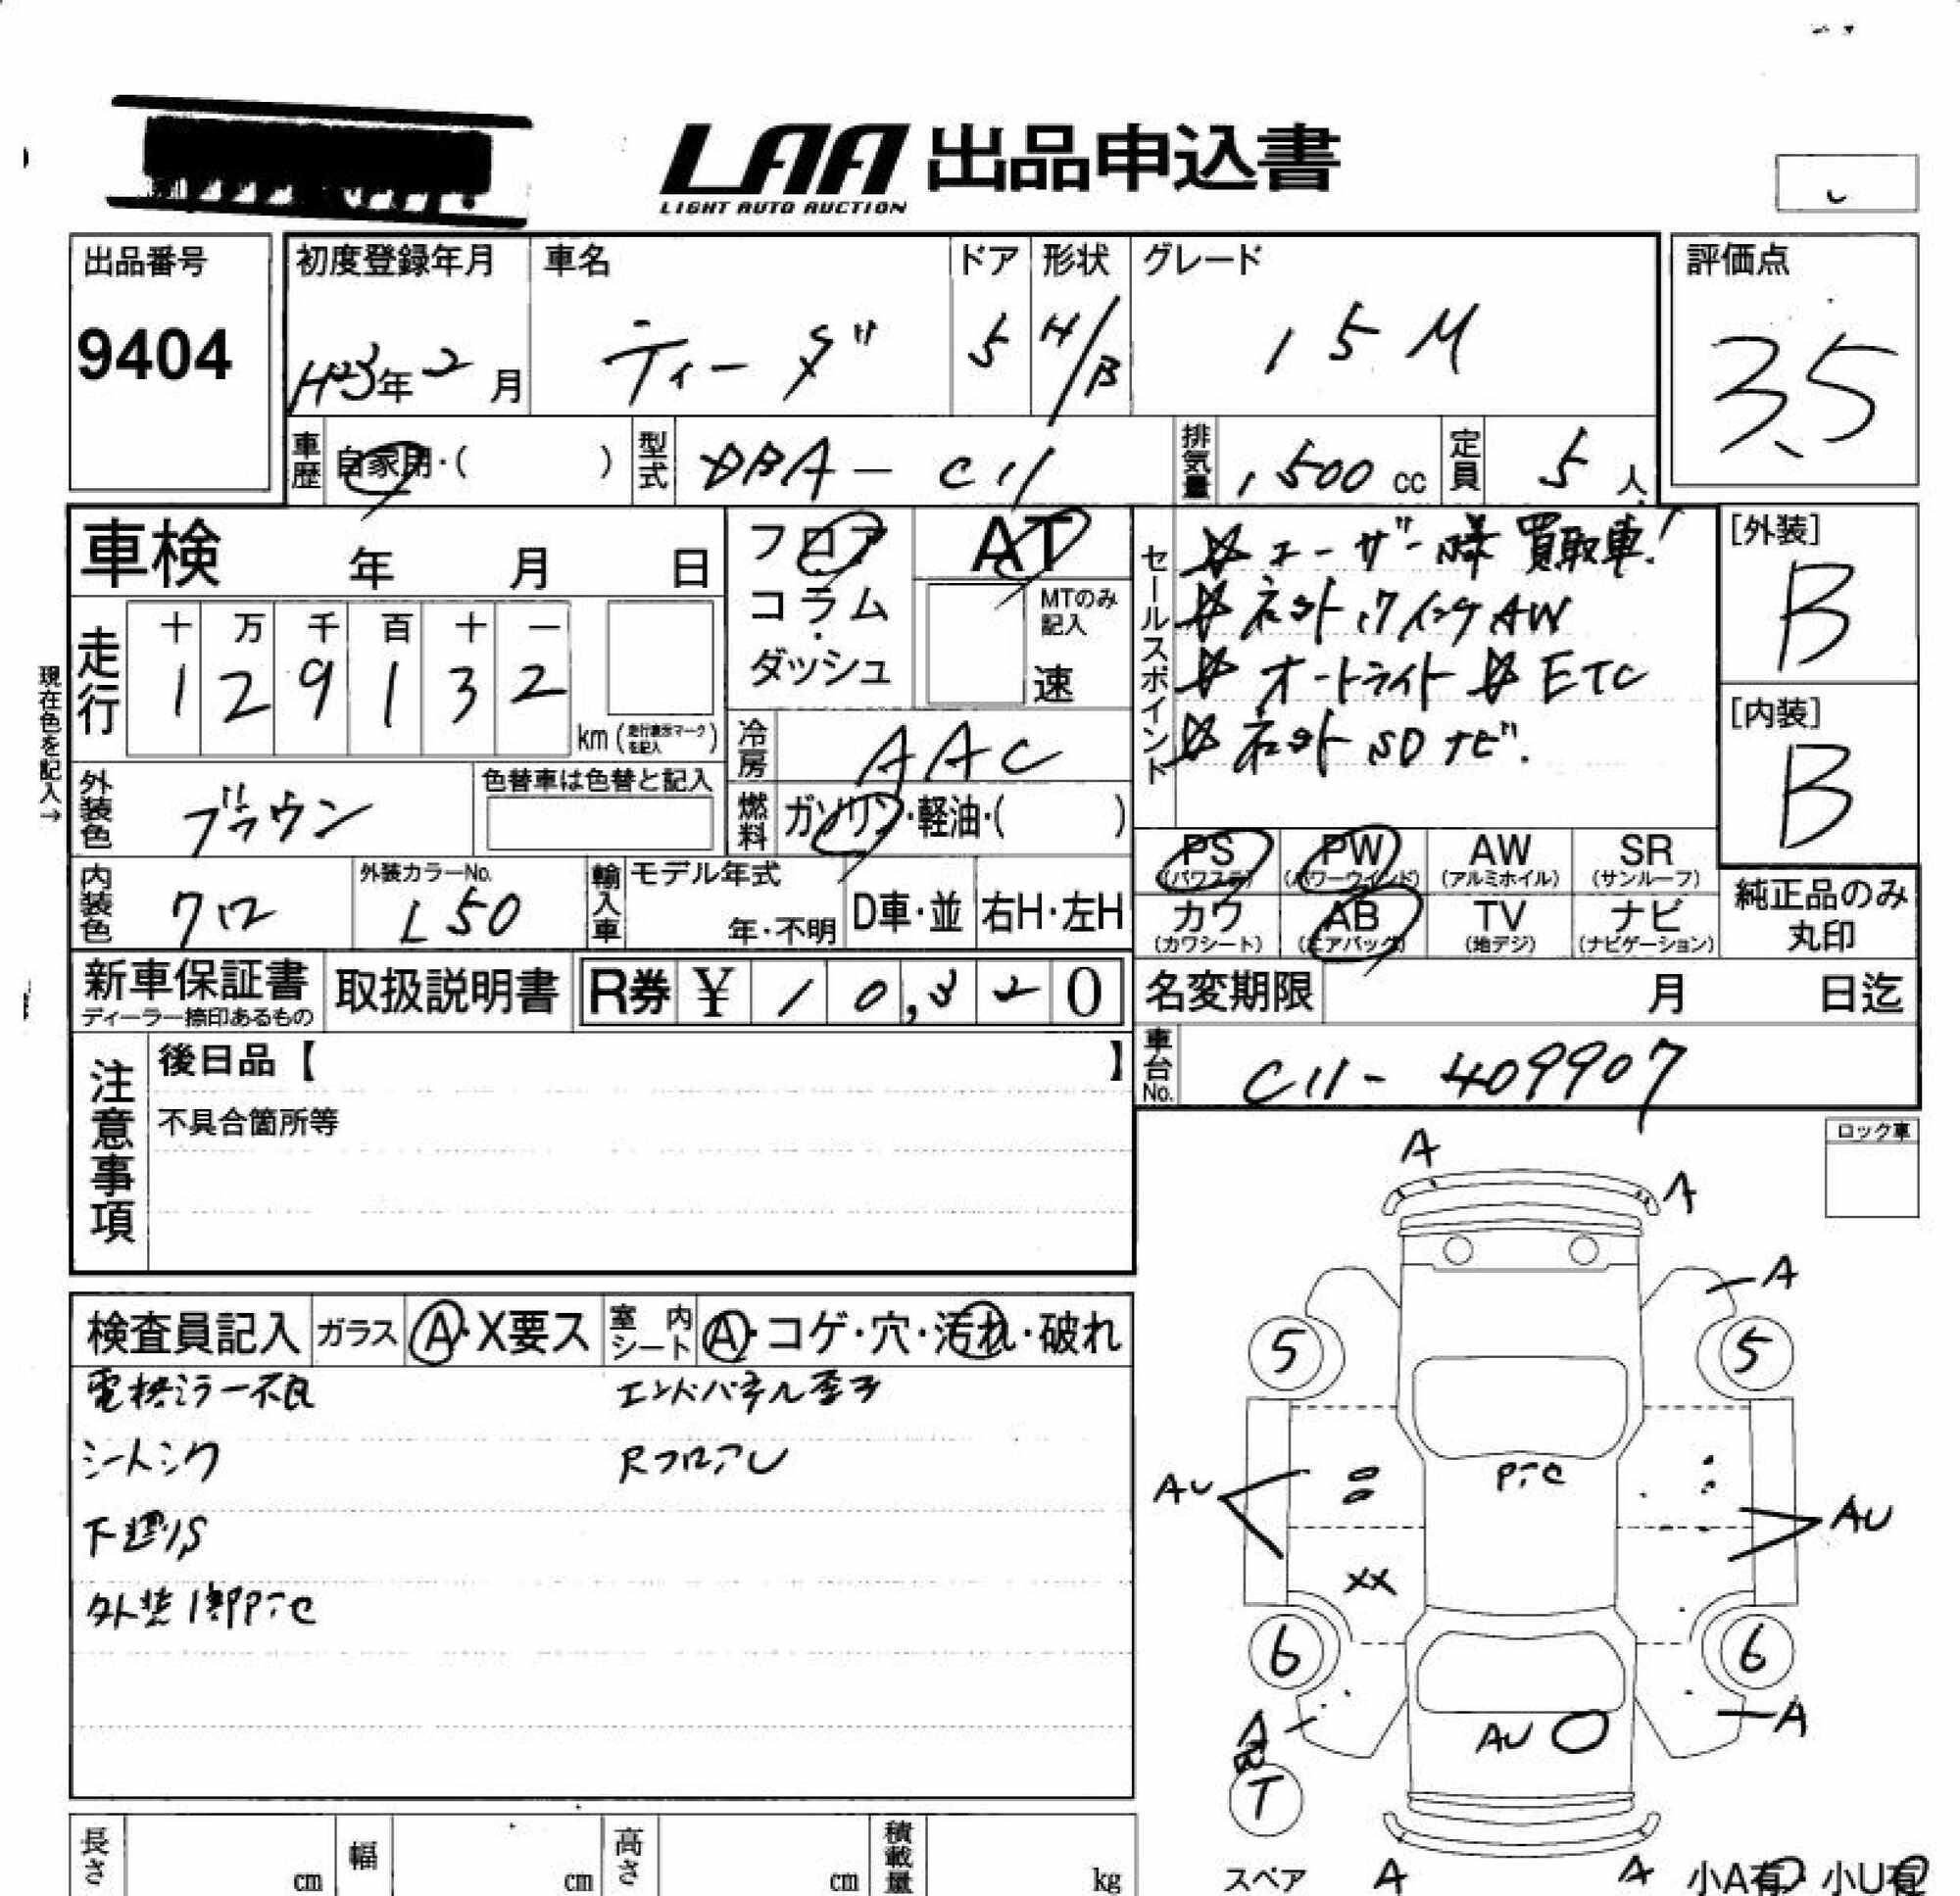 LAA 出品申込書
LIGHT AUTO AUCTION
出品番号
9404
初度登録年月 車名 ドア 形状 グレード
H23年2月 ティーダ 5 H/B 15M
評価点
3.5
車歴 自家用・( ) 型式 DBA-C11 排気量 1,500cc 定員 5人
車検 年 月 日
フロア・コラム・ダッシュ
AT
MTのみ記入
速
セールスポイント
☆ユーザー様買取車!
☆ネットウイングAW
☆オートライト ☆ETC
☆ネットSDナビ.
[外装]
B
[内装]
B
走行 十 万 千 百 十 一
1 2 9 1 3 2
km(走行表示マークを記入)
現在色を記入→
冷房 AAC
外装色 ブラウン 色替車は色替と記入
燃料 ガソリン・軽油・( )
内装色 クロ 外装カラーNo. L50
輸入車 モデル年式 年・不明 D車・並 右H・左H
PS(パワステ) PW(パワーウインド) AW(アルミホイル) SR(サンルーフ)
カワ(カワシート) AB(エアバッグ) TV(地デジ) ナビ(ナビゲーション)
純正品のみ丸印
新車保証書 ディーラー捺印あるもの 取扱説明書 R券 ¥10,320
名変期限 月 日迄
車台No. C11-409907
注意事項 後日品【 】
不具合箇所等
ロック車
検査員記入 ガラス A・X要ス 室内シート A・コゲ・穴・汚れ・破れ
電格ミラー不良 エンドパネル歪み
シートシワ RフロアU
下廻りS
外装1部P亍セ
A
A
A
5 5
P亍セ
AU AU
XX
6 6
A
A
AU
T
スペア
A A
小A有 小U有
長さ cm 幅 cm 高さ cm 積載量 kg